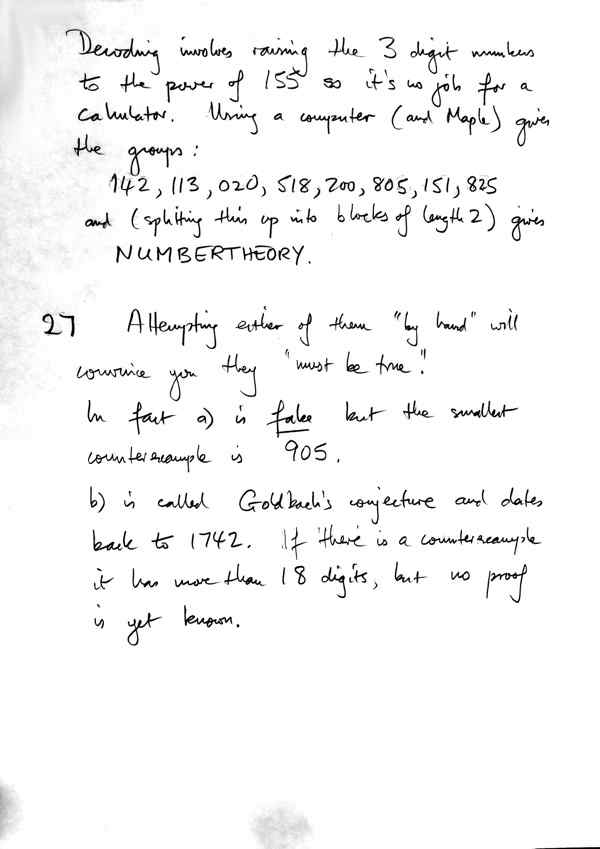 Decoding involves raising the 3 digit numbers
to the power of 155 so it's no job for a
calculator. Using a computer (and Maple) gives
the groups:
142, 113, 020, 518, 200, 805, 151, 825
and (splitting this up into blocks of length 2) gives
NUMBERTHEORY.
27 Attempting either of them "by hand" will
convince you they "must be true".
In fact a) is false but the smallest
counterexample is 905.
b) is called Goldbach's conjecture and dates
back to 1742. If there is a counterexample
it has more than 18 digits, but no proof
is yet known.